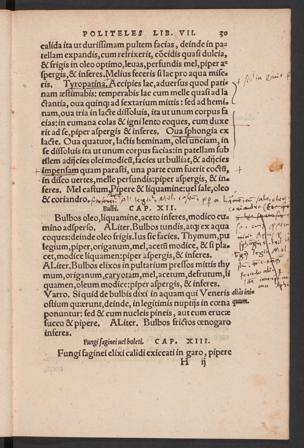 POLITELES LIB. VII. 30
calida ita ut durissimam pultem facias, deinde in pa-
tellam expandis, cum refrixerit, cõcidis quasi dulcia,
& frigis in oleo optimo, leuas, perfundis mel, piper a-
spergis, & inferes. Melius feceris si lac pro aqua mise-
ris. Tyropatina. Accipies lac, aduersus quod pati-
nam æstimabis: temperabis lac cum melle quasi ad la
ctantia, oua quinqꝫ ad sextarium mittis: sed ad hemi-
nam, oua tria in lacte dissoluis, ita ut unum corpus fa
cias: in cumana colas & igni lento coques, cum duxe
rit ad se, piper aspergis & inferes. Oua sphongia ex
lacte. Oua quatuor, lactis heminam, olei unciam, in
se dissoluis ita ut unum corpus facias: in patellam sub
tilem adijcies olei modicũ, facies ut bulliat, & adijcies
impensam quam parasti, una parte cum fuerit coctũ,
in disco uertes, melle perfundis: piper aspergis, & in-
feres. Mel castum, Pipere & liquamine: uel sale, oleo
& coriandro.
Bulbi. CAP. XII.
Bulbos oleo, liquamine, aceto inferes, modico cu-
mino adsperso. ALiter. Bulbos tundis, atqꝫ ex aqua
coques: deinde oleo frigis. Ius sic facies. Thymum, pu
legium, piper, origanum, mel, acetũ modice, & si pla-
cet, modice liquamen: piper aspergis, & inferes.
ALiter. Bulbos elixos in pultarium pressos mittis thy
mum, origanum, caryotam, mel, acetum, defrutum, li
quamen, oleum modice: piper aspergis, & inferes.
Varro. Si quid de bulbis dixi in aquam qui Veneris
ostium quærunt, deinde, in legitimis nuptijs in cœna
ponuntur: sed & cum nucleis pineis, aut cum erucæ
succo & pipere. ALiter. Bulbos frictos œnogaro
inferes.
Fungi faginei uel boleti. CAP. XIII.
Fungi faginei elixi calidi exiccati in garo, pipere
H ij